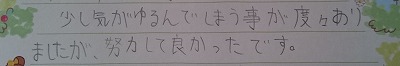 少し気がゆるんでしまう事が度々あり
ましたが、努力して良かったです。